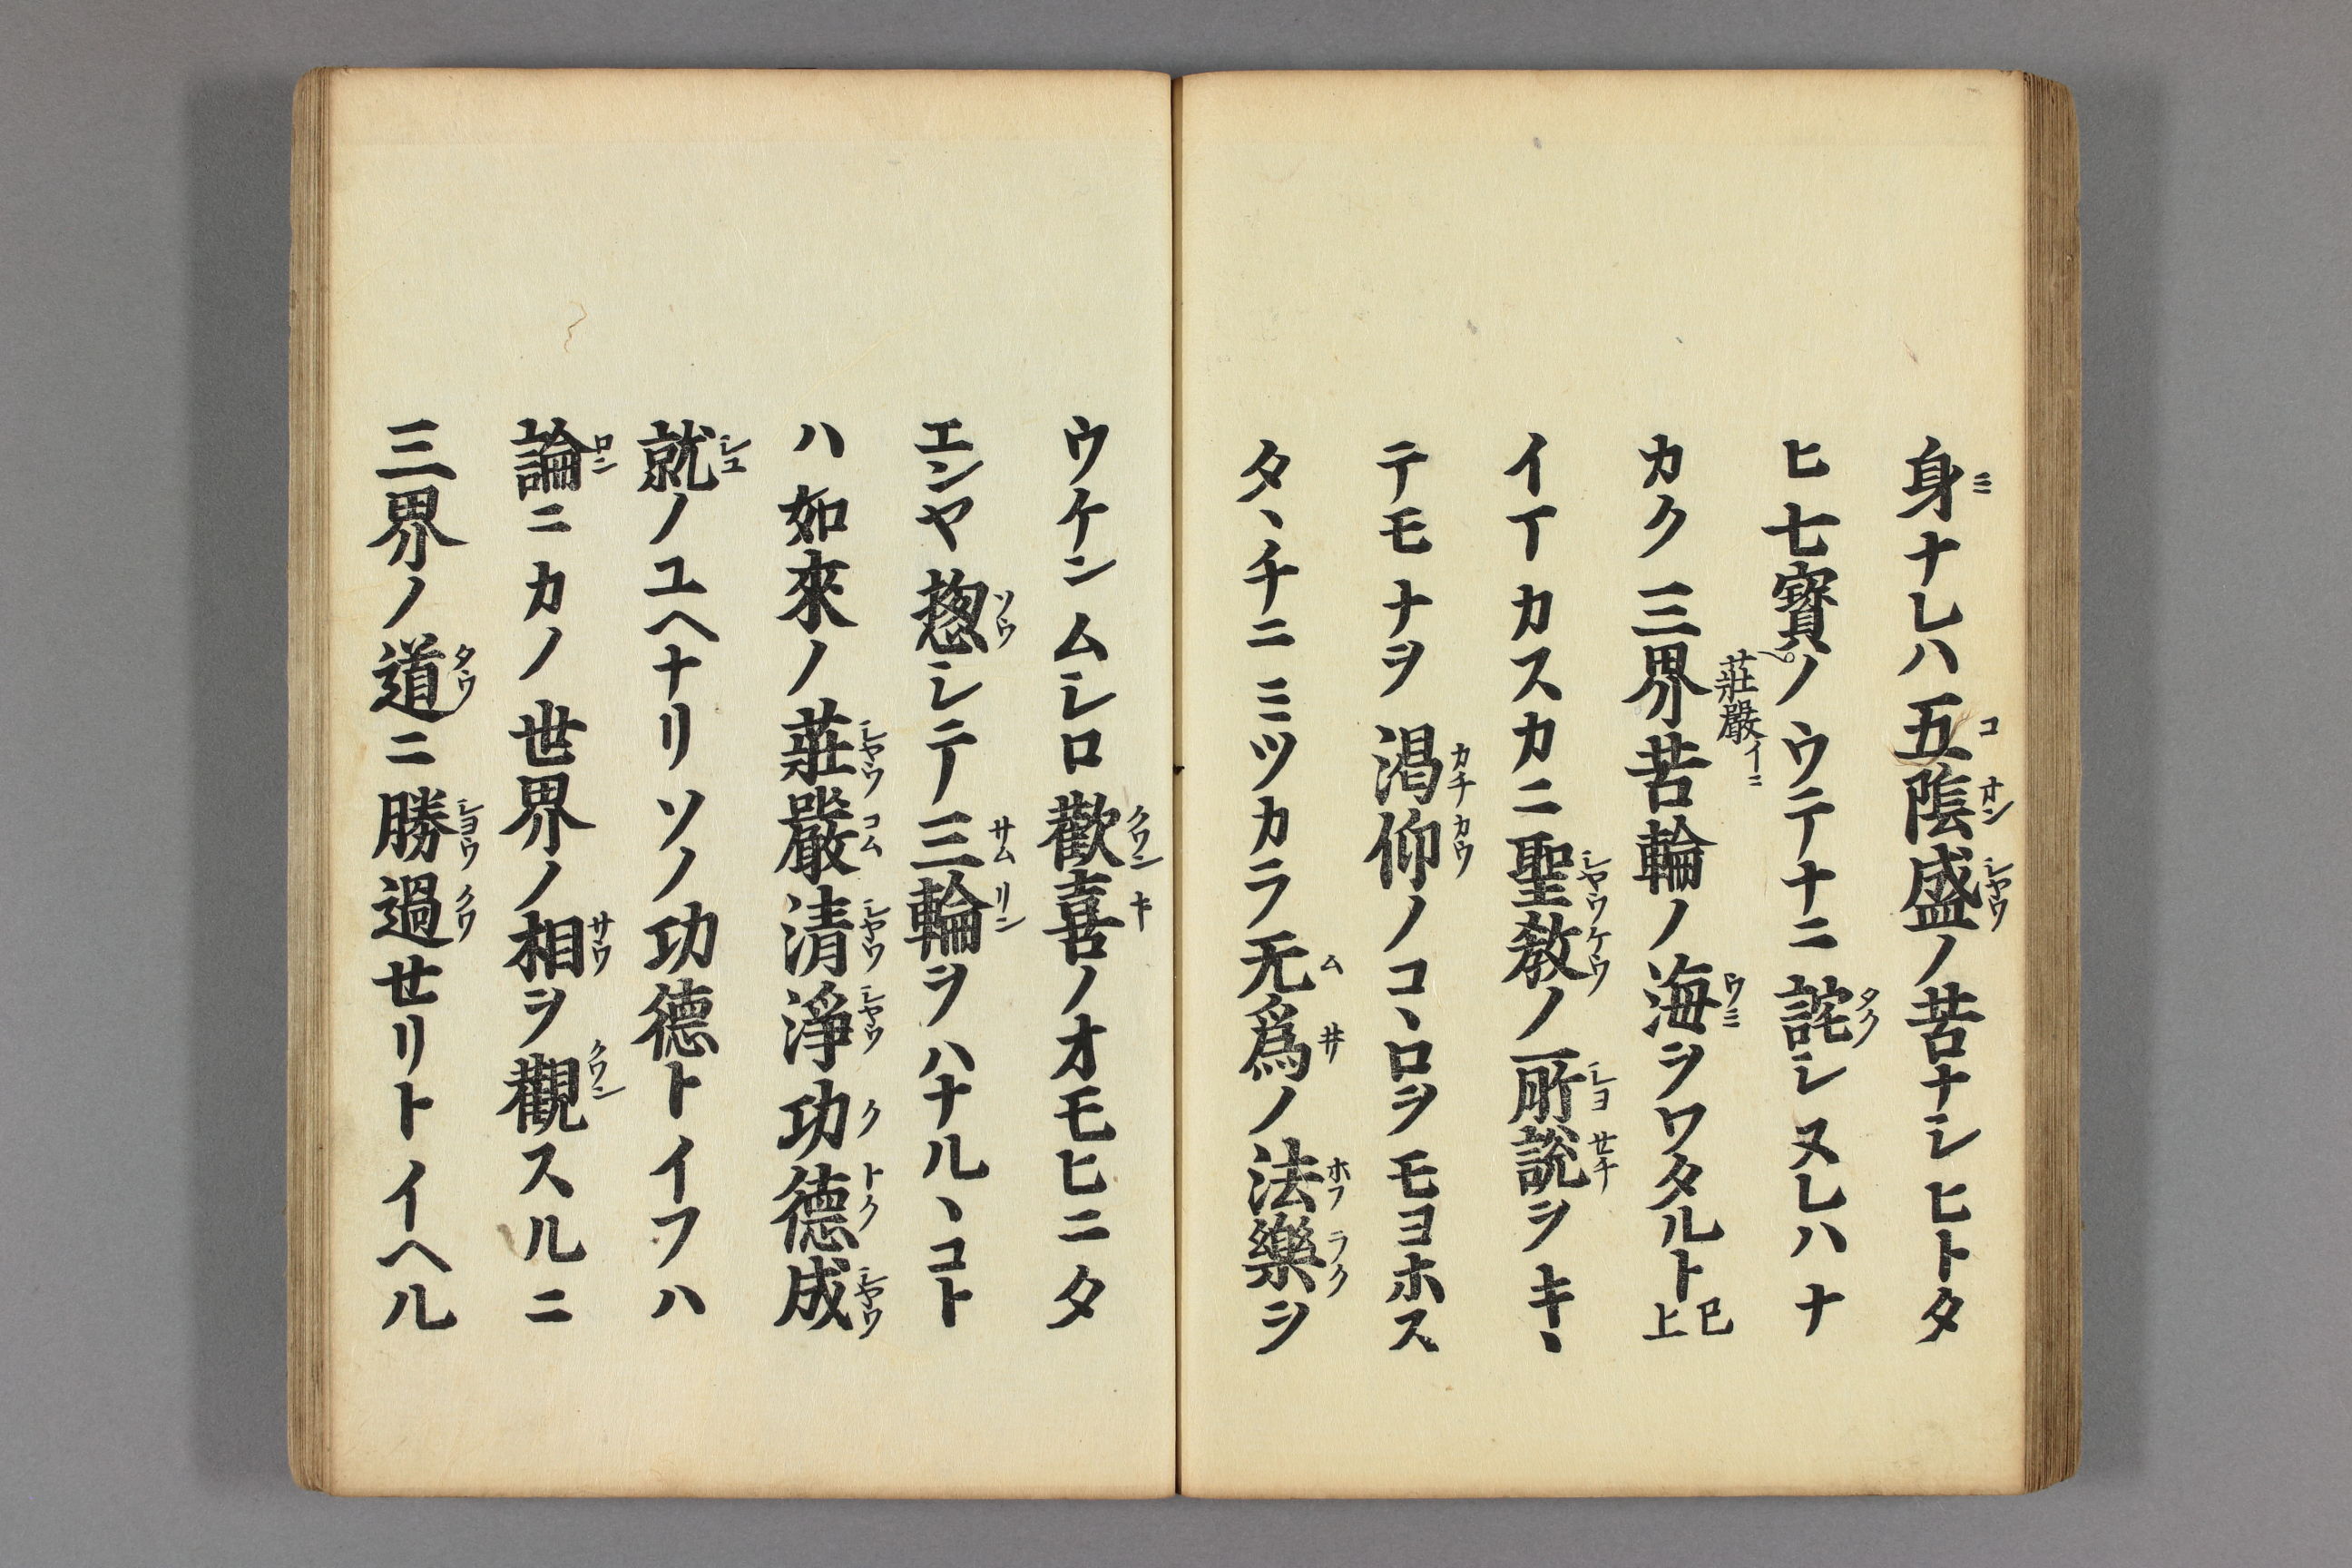 身ナレハ五隂盛ノ苦ナシヒトタ
ヒ七寳ノウテナニ詫シヌレハナ
カク三界苦輪ノ海ヲワタルト已上
イイカスカニ聖教ノ所説ヲキヽ
テモナヲ渇仰ノコヽロヲモヨホス
タヽチニミツカラ无爲ノ法樂ヲ
ウケンムシロ歡喜ノオモヒニタ
エンヤ揔シテ三輪ヲハナルヽコト
ハ如來ノ莊嚴清淨功德成
就ノユヘナリソノ功德トイフハ
論ニカノ世界ノ相ヲ觀スルニ
三界ノ道ニ勝過せリトイヘル